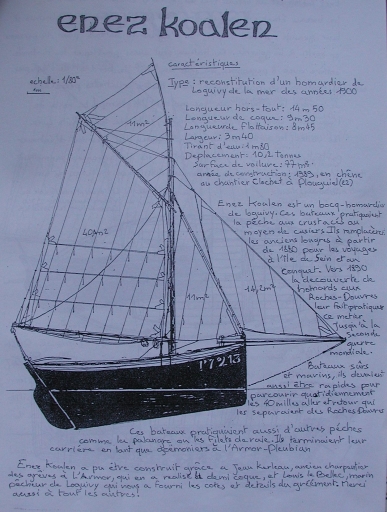 enez koalen
caractéristiques
echelle: 1/80e
1m
Type: reconstitution d'un homardier de
Loguivy de la mer des années 1900
Longueur hors-tout: 14m50
Longueur de coque: 9m30
Longueur de flottaison: 8m45
Largeur: 3m40
Tirant d'eau: 1m80
Deplacement: 10,2 tonnes
Surface de voilure: 77m²
année de construction: 1989, en chêne
au chantier Clochet à Plouguiel (22)
11m²
40m²
11m²
14,2m²
P7213
Enez Koalen est un bocq-homardier
de Loguivy. Ces bateaux pratiquaient
la pêche aux crustacés au
moyen de casiers. Ils remplacèrent
les anciens lougres à partir
de 1880 pour les voyages
à l'Ile de Sein et au
Conquet. Vers 1890
la découverte de
homards aux
Roches-Douvres
leur fait pratiquer
ce métier
jusqu'à la
seconde
guerre
mondiale.
Bateaux sûrs
et marins, ils devaient
aussi être rapides pour
parcourir quotidiennement
les 40 milles aller et retour qui
les séparaient des Roches Douvres
Ces bateaux pratiquaient aussi d'autres pêches
comme la palangre ou les filets de raie. Ils terminaient leur
carrière en tant que goémoniers à l'Armor-Pleubian
Enez Koalen a pu être construit grâce à Jean Kerleau, ancien charpentier
des grèves à l'Armor, qui en a réalisé la demi coque, et Louis Le Bellec, marin
pêcheur de Loguivy qui nous a fourni les cotes et détails du gréement. Merci
aussi à tous les autres!